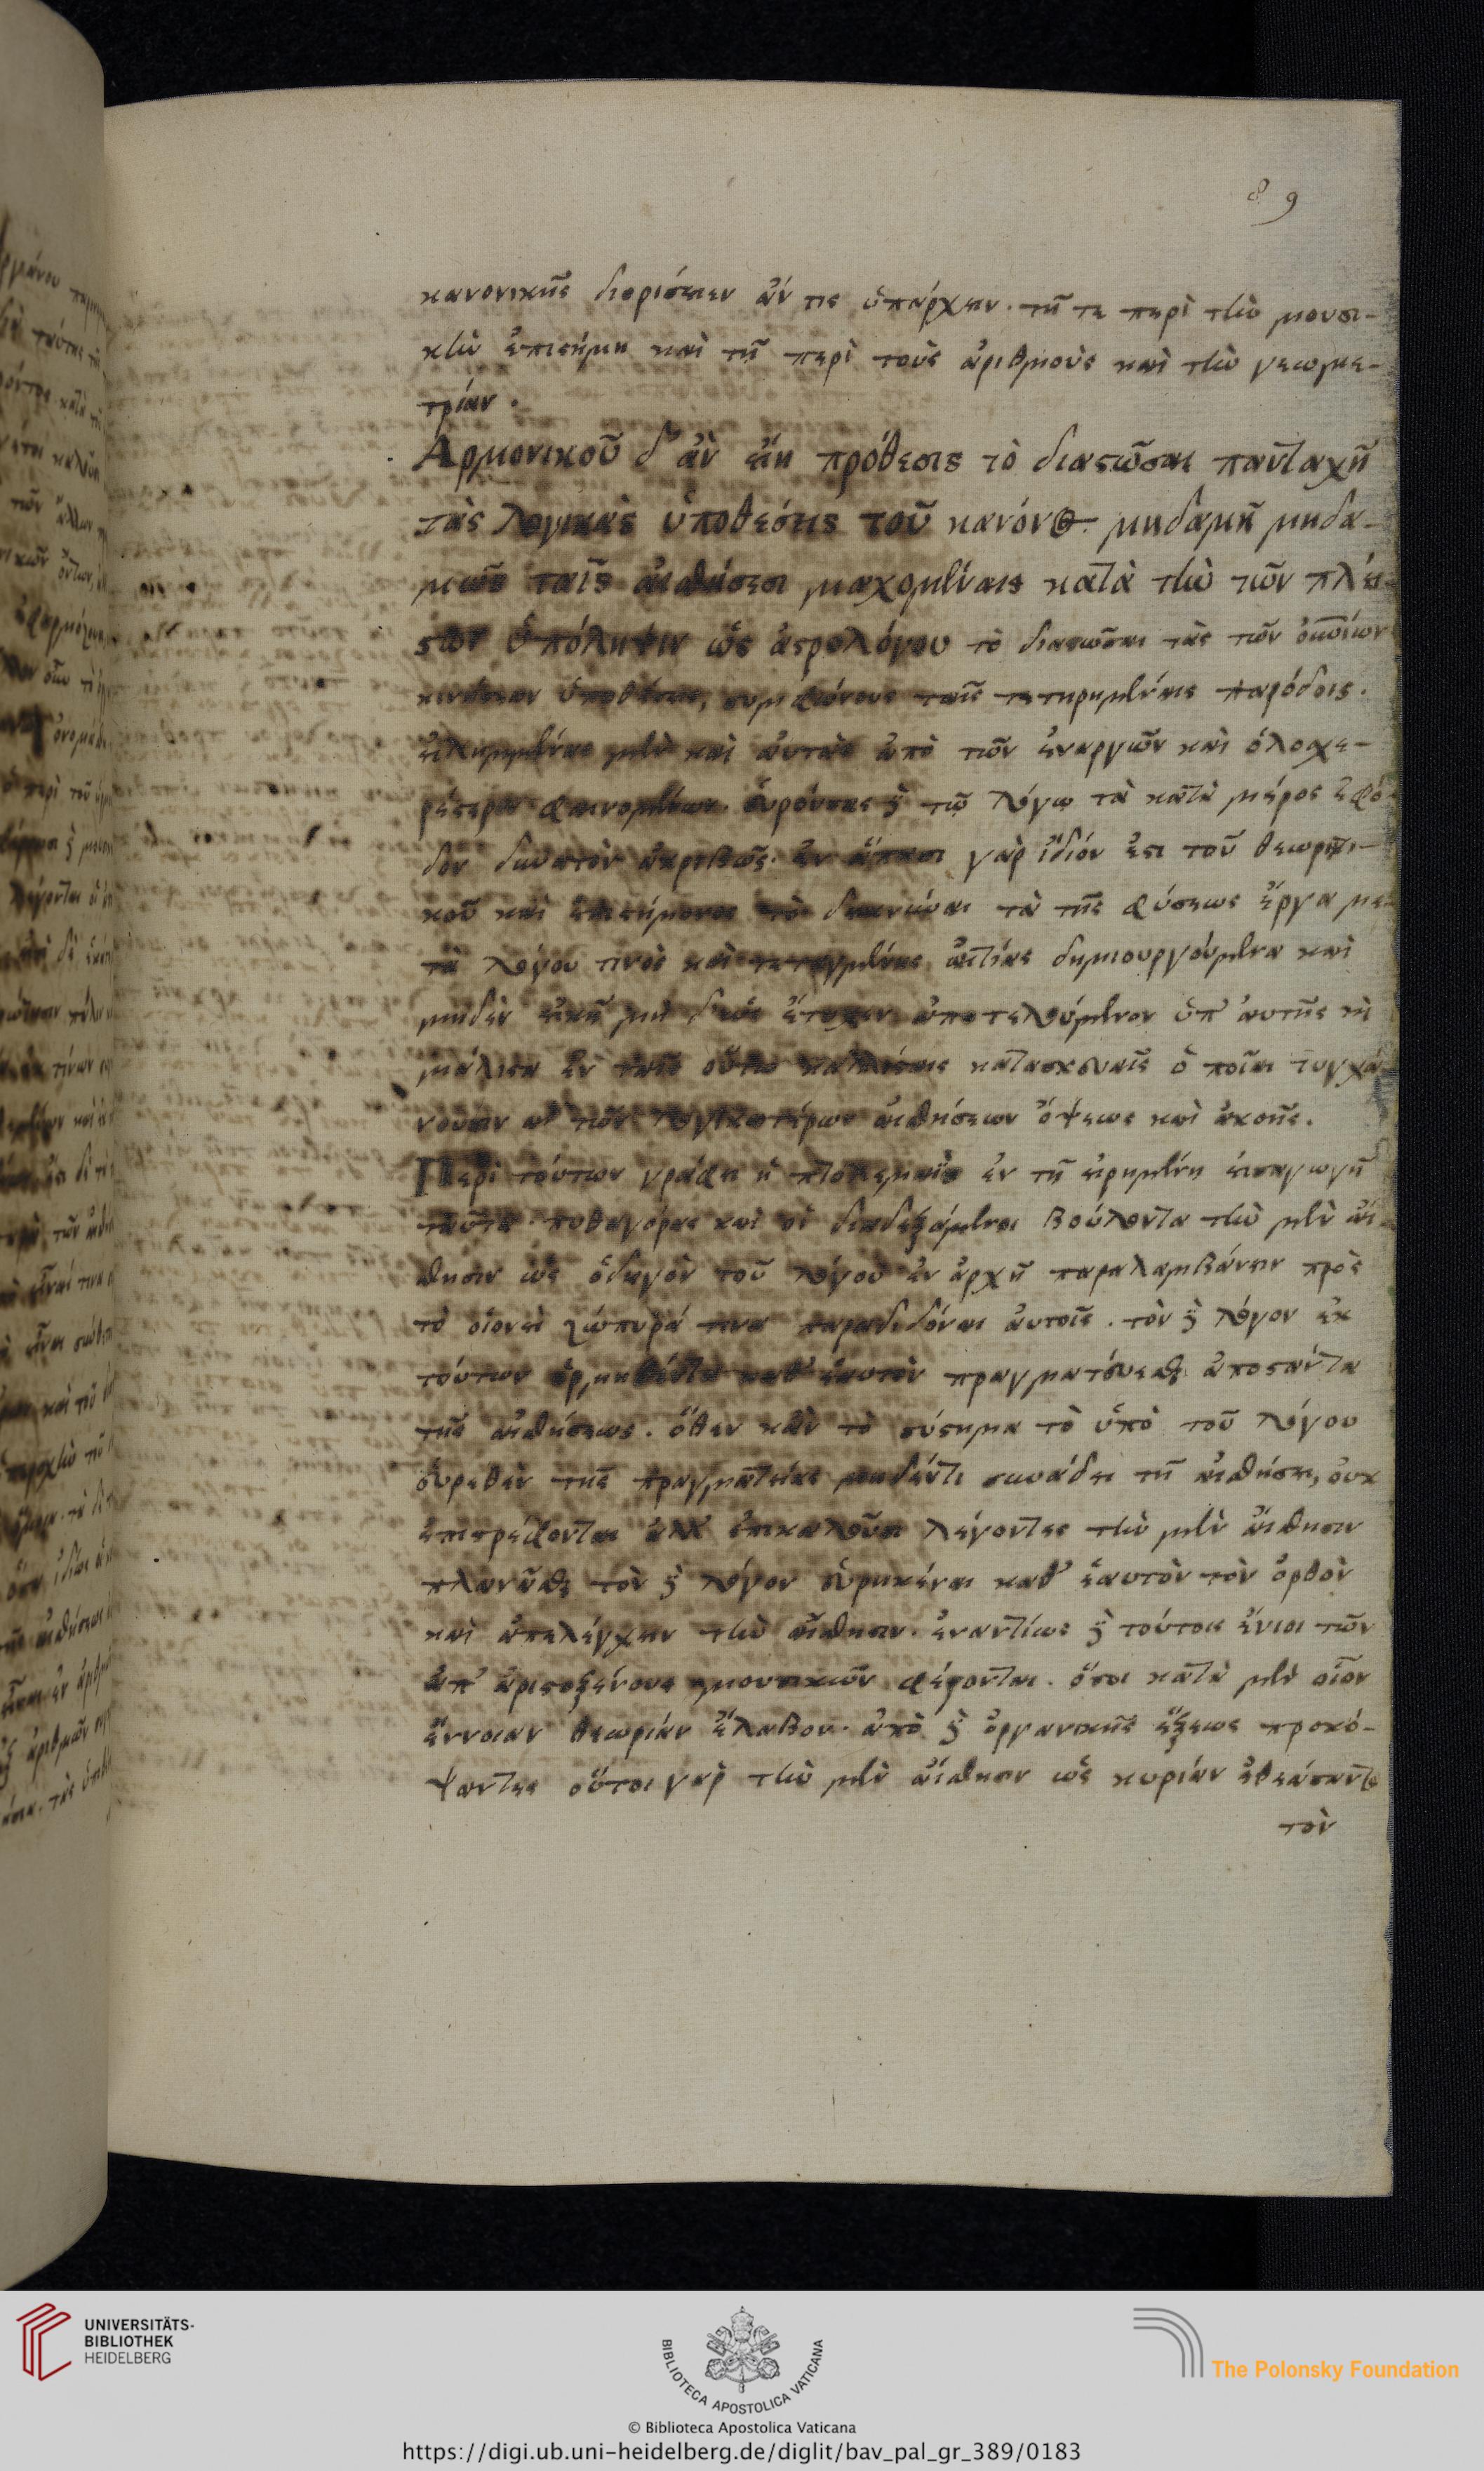 89
κανονικῆς διορίσειεν ἄν τις ὑπάρχειν. τῇ τε περὶ τὴν μουσι-
κὴν ἐπιστήμῃ καὶ τῇ περὶ τοὺς ἀριθμοὺς καὶ τὴν γεωμε-
τρίαν.
Ἁρμονικοῦ δ' ἂν εἴη πρόθεσις τὸ διασῶσαι πανταχῇ
τὰς λογικὰς ὑποθέσεις τοῦ κανόνος μηδαμῇ μηδα-
μῶς ταῖς αἰσθήσεσι μαχομένας κατὰ τὴν τῶν πλεί-
στων ὑπόληψιν ὡς ἀστρολόγου τὸ διασῶσαι τὰς τῶν οὐρανίων
κινήσεων ὑποθέσεις, συμφώνους ταῖς τετηρημέναις παρόδοις.
εἰλημμένας μὲν καὶ αὐτὰς ἀπὸ τῶν ἐναργῶν καὶ ὁλοσχε-
ρέστερον φαινομένων. εὑρούσας δὲ τῷ λόγῳ τὰ κατὰ μέρος ἐφό-
σον δυνατὸν ἀκριβῶς. ἐν ἅπασι γὰρ ἴδιόν ἐστι τοῦ θεωρητι-
κοῦ καὶ ἐπιστήμονος τὸ δεικνύναι τὰ τῆς φύσεως ἔργα με-
τὰ λόγου τινὸς καὶ τεταγμένης αἰτίας δημιουργούμενα καὶ
μηδὲν εἰκῇ μὴ δ' ὡς ἔτυχεν ἀποτελούμενον ὑπ' αὐτῆς καὶ
μάλιστα ἐν ταῖς οὕτω καλλίσταις κατασκευαῖς ὁποῖαι τυγχά-
νουσιν αἱ τῶν λογικωτέρων αἰσθήσεων ὄψεως καὶ ἀκοῆς.
Περὶ τούτων γράφει ἡ πτολεμαῒς ἐν τῇ εἰρημένῃ εἰσαγωγῇ
ταῦτα. πυθαγόρας καὶ οἱ διαδεξάμενοι βούλονται τὴν μὲν αἴ-
σθησιν ὡς ὁδηγὸν τοῦ λόγου ἐν ἀρχῇ παραλαμβάνειν πρὸς
τὸ οἱονεὶ ζώπυρά τινα παραδιδόναι αὐτοῖς. τὸν δὲ λόγον ἐκ
τούτων ὁρμηθέντα καθ' ἑαυτὸν πραγματεύεσθαι ἀποστάντα
τῆς αἰσθήσεως. ὅθεν κἂν τὸ σύστημα τὸ ὑπὸ τοῦ λόγου
εὑρεθὲν τῆς πραγματείας μηκέτι συνάδει τῇ αἰσθήσει, οὐκ
ἐπιστρέφονται ἀλλ' ἐπικαλοῦσι λέγοντες τὴν μὲν αἴσθησιν
πλανᾶσθαι τὸν δὲ λόγον εὑρηκέναι καθ' ἑαυτὸν τὸν ὀρθὸν
καὶ ἀπελέγχειν τὴν αἴσθησιν. ἐναντίως δὲ τούτοις ἔνιοι τῶν
ἀπ' ἀριστοξένους μουσικῶν φέρονται. ὅσοι κατὰ μὲν οἷον
ἔννοιαν θεωρίαν ἔλαβον. ἀπὸ δὲ ὀργανικῆς ἕξεως προκό-
ψαντες οὗτοι γὰρ τὴν μὲν αἴσθησιν ὡς κυρίαν ἐθεάσαντο
τὸν
UNIVERSITÄTS-
BIBLIOTHEK
HEIDELBERG
BIBLIOTECA APOSTOLICA VATICANA
The Polonsky Foundation
© Biblioteca Apostolica Vaticana
https://digi.ub.uni-heidelberg.de/diglit/bav_pal_gr_389/0183